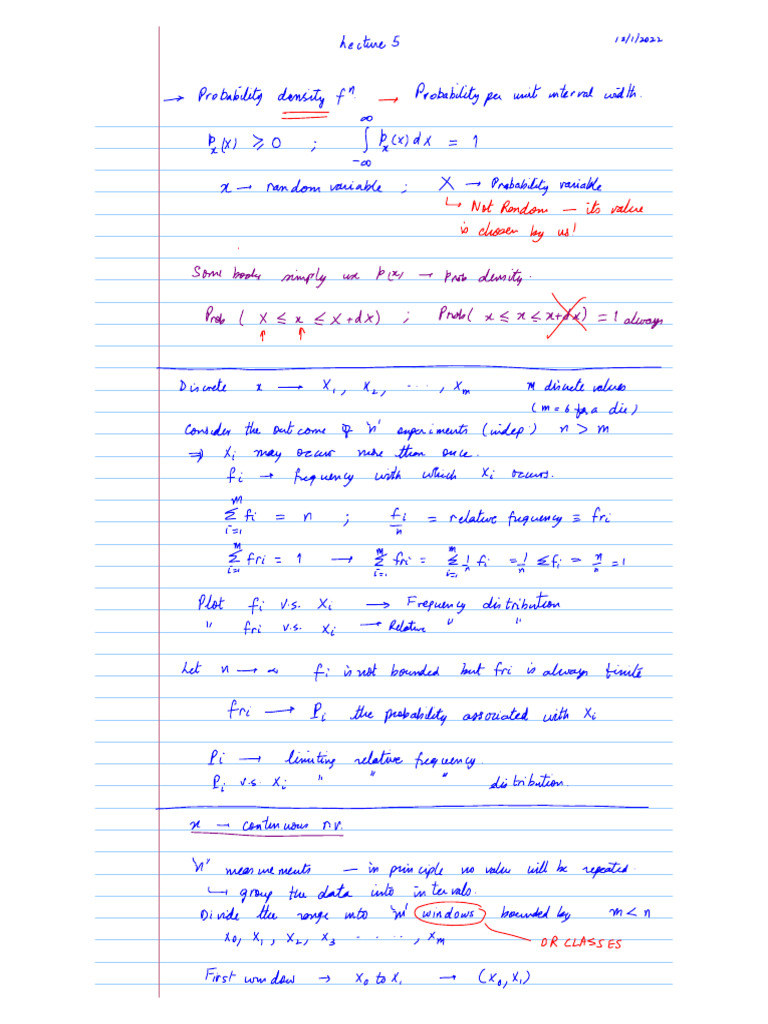 Lecture 5
13/1/2022
→ Probability density fⁿ. → Probability per unit interval width.
p_x(X) ⩾ 0 ; ∫_{-∞}^{∞} p_x(X) dX = 1
x → random variable ; X → Probability variable
↳ Not Random — its value
is chosen by us!
Some books simply use p(x) → prob density.
Prob ( X ≤ x ≤ X+dX) ; Prob( x ≤ x ≤ x+dx) = 1 always
Discrete x → X₁, X₂, ...., Xₘ m discrete values
(m=6 for a die)
Consider the outcome of 'n' experiments (indep) n > m
⇒ Xᵢ may occur more than once.
fᵢ → frequency with which Xᵢ occurs.
Σ_{i=1}^{m} fᵢ = n ; fᵢ/n = relative frequency ≡ fri
Σ_{i=1}^{m} fri = 1 → Σ_{i=1}^{m} fri = Σ_{i=1}^{m} 1/n fᵢ = 1/n Σfᵢ = n/n = 1
Plot fᵢ v.s. Xᵢ → Frequency distribution
" fri v.s. Xᵢ → Relative " "
Let n → ∞ fᵢ is not bounded but fri is always finite
fri → Pᵢ the probability associated with Xᵢ
Pᵢ → limiting relative frequency.
Pᵢ v.s. Xᵢ " " " distribution.
x → continuous r.v.
'n' measurements — in principle no value will be repeated.
↳ group the data into intervals.
Divide the range into 'm' windows bounded by m < n
x₀, x₁, x₂, x₃ ....., xₘ
OR CLASSES
First window → x₀ to x₁ → (x₀, x₁)